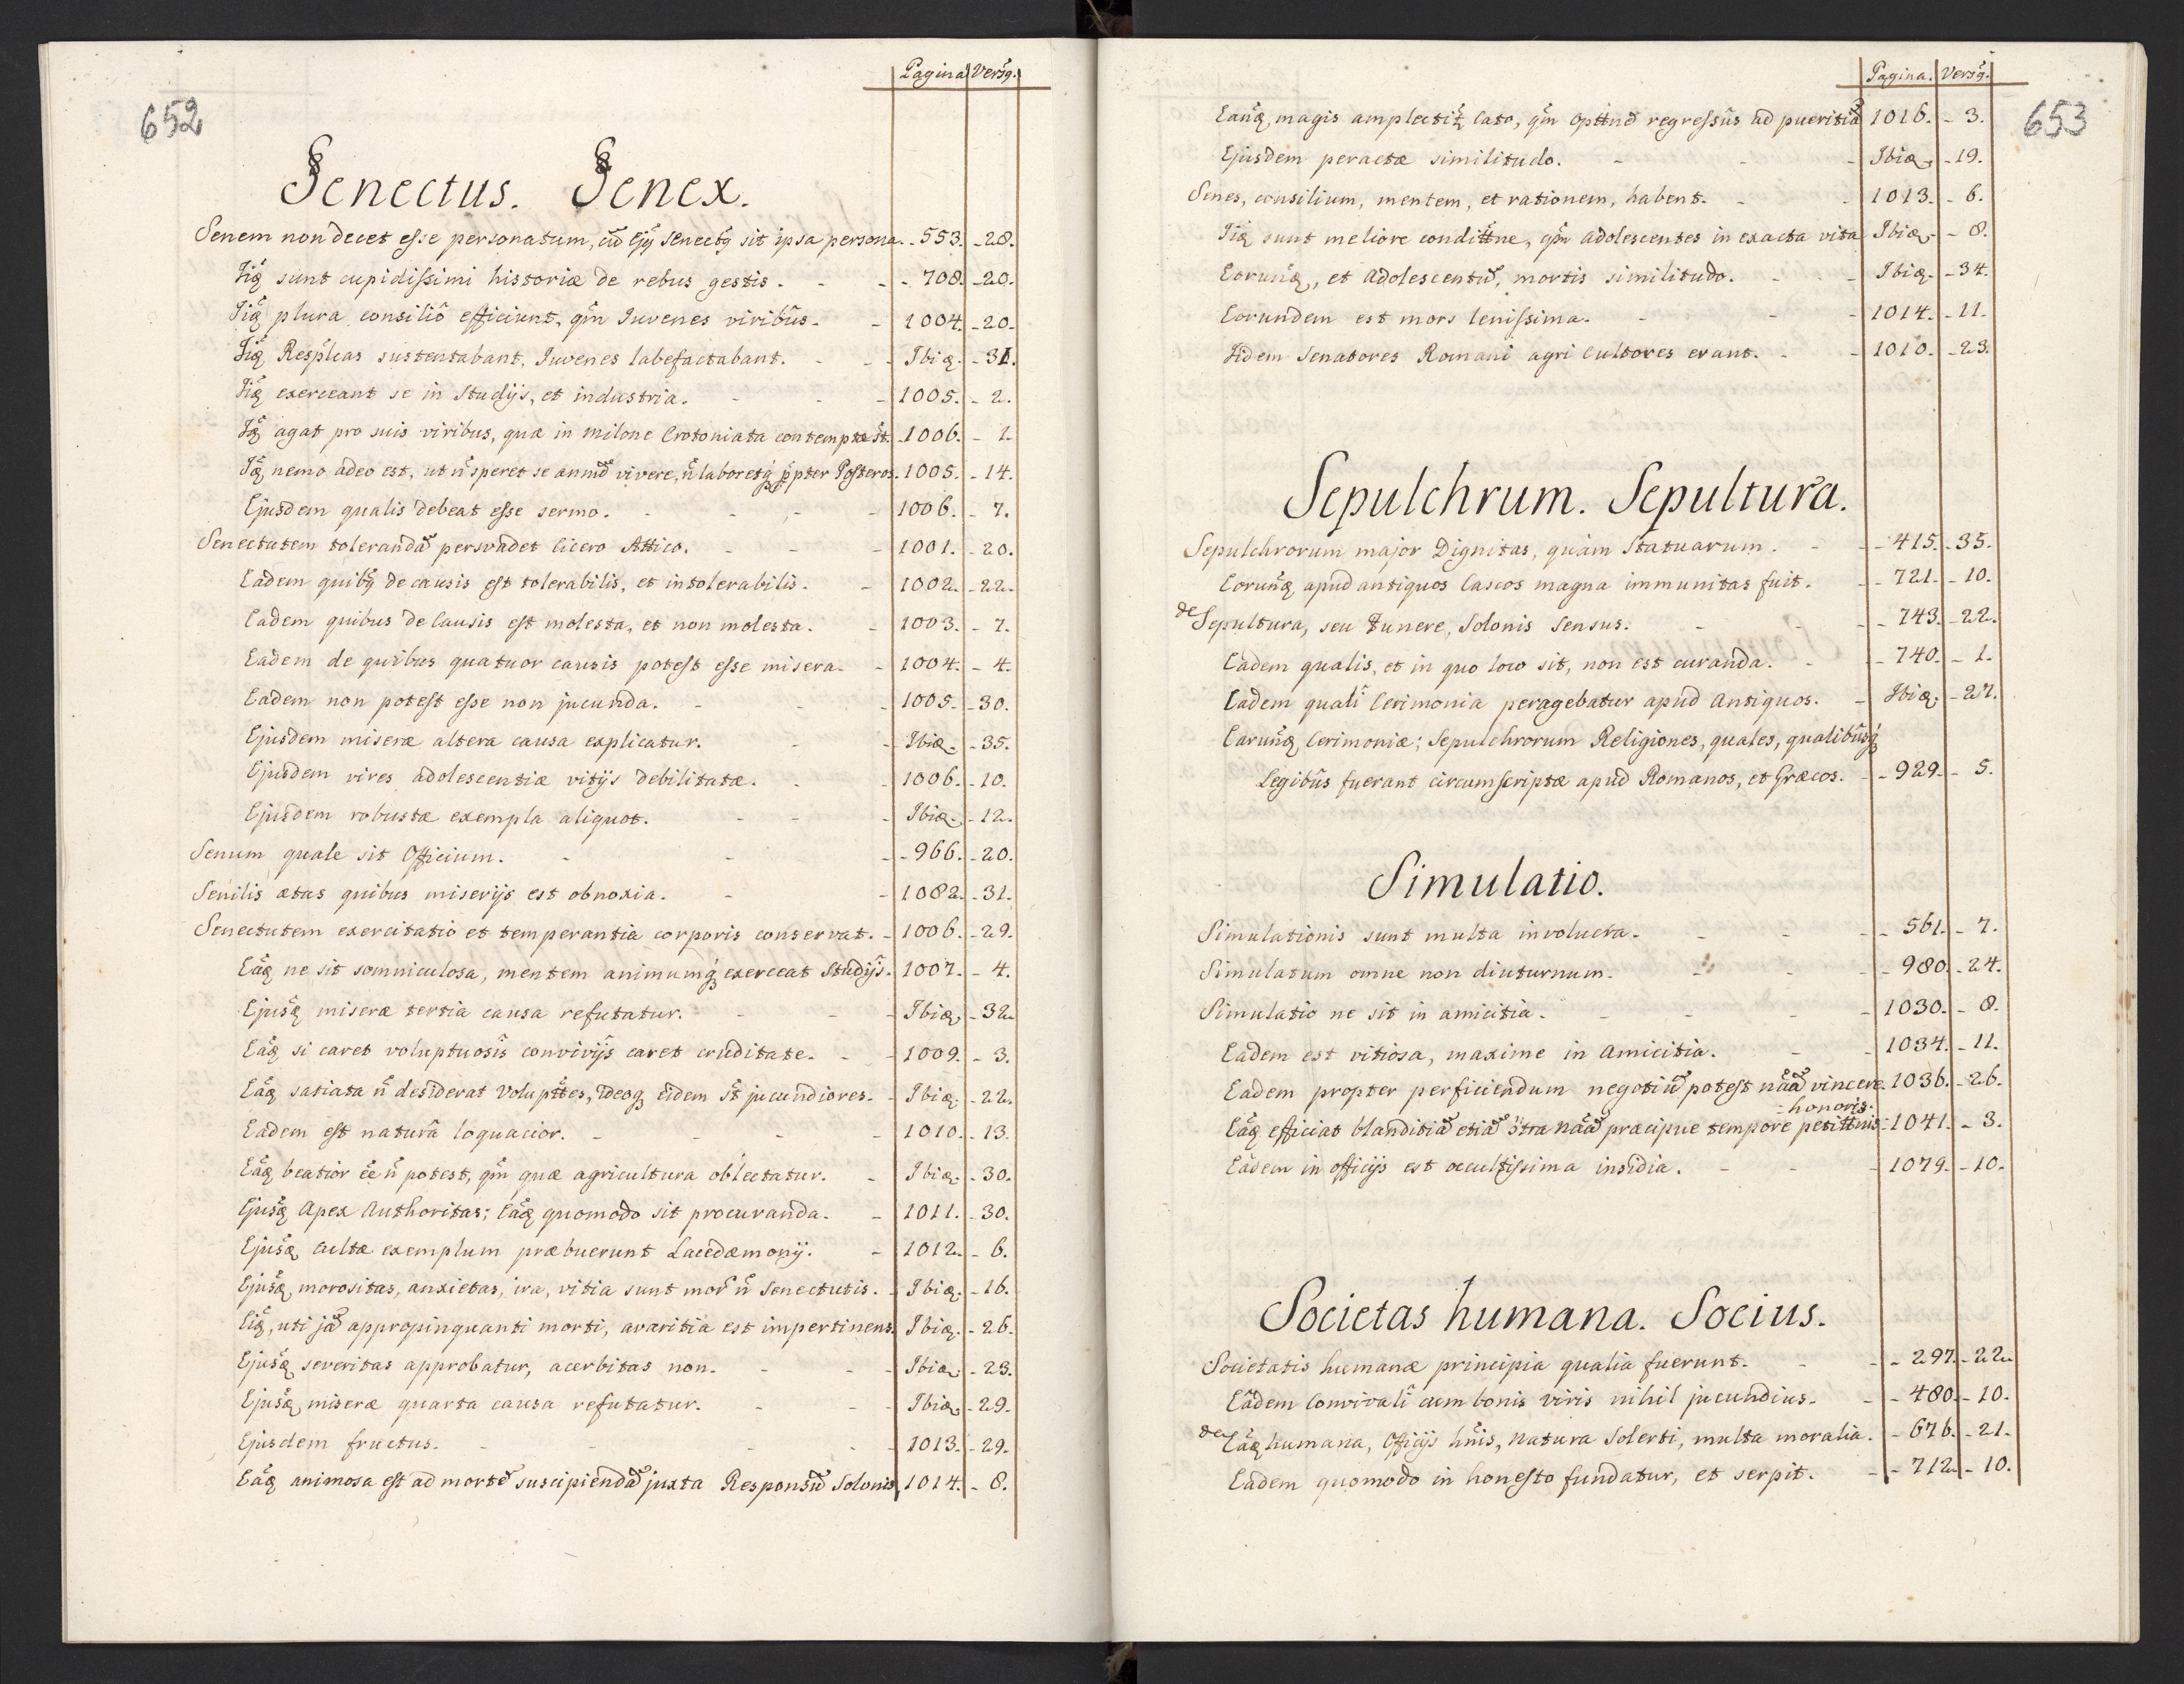 Pagina Versq.
652
Senectus. Senex.
Senem non decet esse personatum, cũ ejq senectq sit ipsa persona. 553. 28.
Iiq sunt cupidissimi historiæ de rebus gestis. 708. 20.
Iiq plura consiliô efficiunt, qm̃ Iuvenes viribûs. 1004. 20.
Iiq Resp̃licas sustentabant, Iuvenes labefactabant. Ibiq. 31.
Iiq exerceant se in studijs, et industria. 1005. 2.
Iq agat pro suis viribus, quæ in Milone Crotoniata contempta st̃. 1006. 1.
Iq nemo adeo est, ut ñ speret se annũ vivere, ñ laboretq p̃pter Posteros. 1005. 14.
Ejusdem qualis debeat esse sermo. 1006. 7.
Senectutem tolerandã persvadet Cicero Attico. 1001. 20.
Eadem quibq de causis est tolerabilis, et intolerabilis. 1002. 22.
Eadem quibus de Causis est molesta, et non molesta. 1003. 7.
Eadem de quibus quatuor causis potest esse misera. 1004. 4.
Eadem non potest esse non jucunda. 1005. 30.
Ejusdem miseræ altera causa explicatur. Ibiq. 35.
Ejusdem vires adolescentiæ vitijs debilitatæ. 1006. 10.
Ejusdem robustæ exempla aliquot. Ibiq. 12.
Senum quale sit Officium. 966. 20.
Senilis ætas quibus miserijs est obnoxia. 1082. 31.
Senectutem exercitatio et temperantia corporis conservat. 1006. 29.
Eãq ne sit somniculosa, mentem animumq exerceat studijs. 1007. 4.
Ejusq miseræ tertia causa refutatur. Ibiq. 32.
Eãq si caret voluptuosis convivijs caret cruditate. 1009. 3.
Eãq satiata ñ desiderat voluptt̃es, ideoq eidem st̃ jucundiores. Ibiq. 22.
Eadem est naturâ loquacior. 1010. 13.
Eãq beatior ẽe ñ potest, qm̃ quæ agricultura oblectatur. Ibiq. 30.
Ejusq Apex Authoritas; Eãq quomodo sit procuranda. 1011. 30.
Ejusq cultæ exemplum præbuerunt Lacedæmonij. 1012. 6.
Ejusq morositas, anxietas, ira, vitia sunt mor̃ ñ Senectutis. Ibiq. 16.
Eiq, uti jã appropinquanti morti, avaritia est impertinens. Ibiq. 26.
Ejusq severitas approbatur, acerbitas non. Ibiq. 23.
Ejusq miseræ quarta causa refutatur. Ibiq. 29.
Ejusdem fructus. 1013. 29.
Eãq animosa est ad mortẽ suscipiendã juxta Responsũ Solonis 1014. 8.
Pagina. Versq.
653
Eañq magis amplectit̃ Cato, qm̃ opttnẽ regressûs ad pueritiã 1016. 3.
Ejusdem peractæ similitudo. Ibiq. 19.
Senes, consilium, mentem, et rationem, habent. 1013. 6.
Iiq sunt meliore condittne, qm̃ adolescentes in exacta vita Ibiq. 8.
Eoruñq, et adolescentũ, mortis similitudo. Ibiq. 34.
Eorundem est mors lenissima. 1014. 11.
Iidem Senatores Romani agri cultores erant. 1010. 23.
Sepulchrum. Sepultura.
Sepulchrorum major Dignitas, quàm Statuarum. 415. 35.
Eoruñq apud antiquos Cascos magna immunitas fuit. 721. 10.
de Sepultura, seu Funere, Solonis sensus. 743. 22.
Eadem qualis, et in quo loco sit, non est curanda. 740. 1.
Eadem quali Cerimonia peragebatur apud Antiquos. Ibiq. 27.
Earuñq Cerimoniæ; Sepulchrorum Religiones, quales, qualibusq
Legibûs fuerant circumscriptæ apud Romanos, et Græcos. 929. 5.
Simulatio.
Simulationis sunt multa involucra. 561. 7.
Simulatum omne non diuturnum. 980. 24.
Simulatio ne sit in amicitia. 1030. 8.
Eadem est vitiosa, maxime in Amicitia. 1034. 11.
Eadem propter perficiendum negotiũ potest nãã vincere 1036. 26.
honoris.
Eãq efficiat blanditiã etiã 9̃tra Nãã præcipue tempore petittnis 1041. 3.
Eadem in officijs est occultissima insidia. 1079. 10.
Societas humana. Socius.
Societatis humanæ principia qualia fuerunt. 297. 22.
Eâdem Convivali cum bonis viris nihil jucundius. 480. 10.
de Eãq humana, Officijs hñis, Natura Solerti, multa moralia. 676. 21.
Eadem quomodo in honesto fundatur, et serpit. 712. 10.